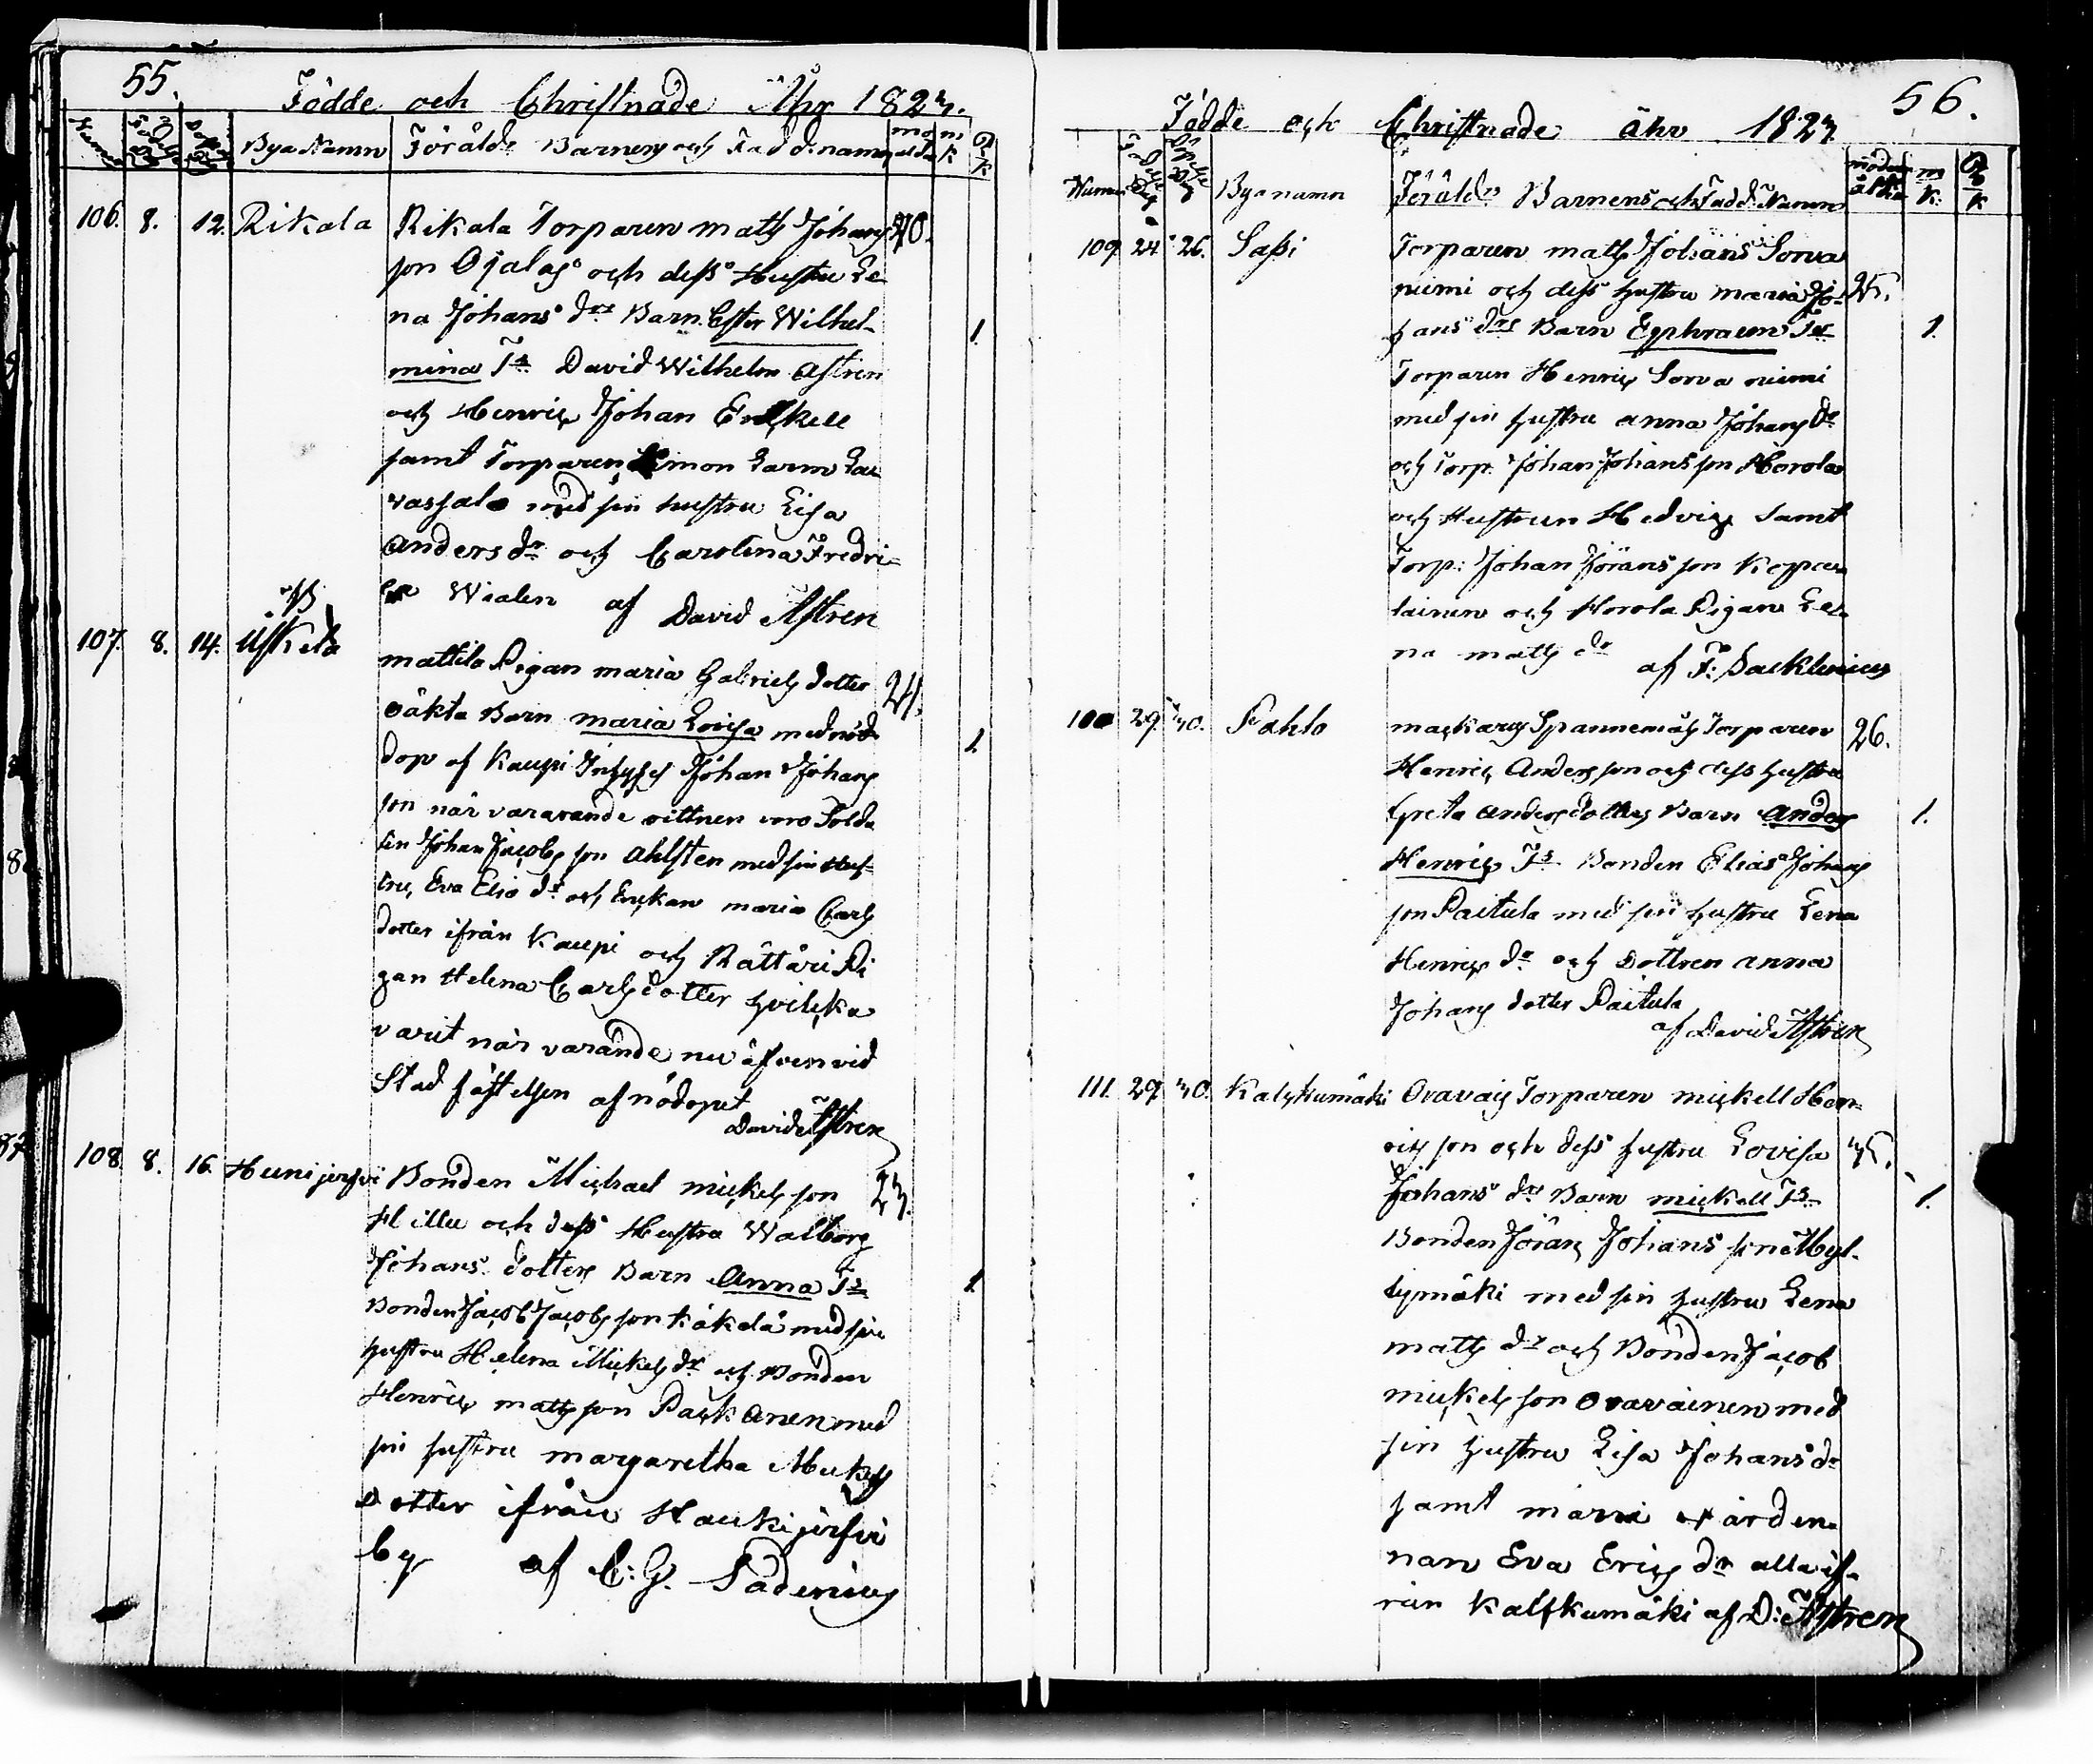 55.
Födde och Christnade Åhr 1823.
Bya Namn Föräld: Barnens och Fadd: namn
106. 8. 12. Rikala Rikala Torparen Matts Johans 40.
son Ojalas och dess Hustru Le
na Johans dr: Barn Ester Wilhel- 1.
mina Ts David Wilhelm Astren
och Henric Johan Enckell
samt Torparen Simon
vassalo med sin hustru Lisa
Anders dr och Carolina Fredri-
ca Wialen af David Astren
107. 8. 14. Uskela Mattila Pigan Maria Gabriels dotter 24.
oäkta Barn Maria Lovisa med nöd
dop af Kaupi Johan Johans 1.
son när varavande vittnen voro Solda
ten Johan Jacobs son Ahlsten med sin Hus-
tru, Eva Elio dr och Enckan Maria Carls
dotter ifrån Kaupi och Rättäri Pi
gan Helena Carls dotter hvilcka
varit när varande nu äfven vid
Stad fästelsen af nödopet
David Astren
108. 8. 16. Hunijerfvi Bonden Michael Mickels son 23.
Hillu och dess Hustru Walborg
Johans dotters Barn Anna Ts 1.
Bonden Jacob Jacobs son Käkelä med sin
hustru Helena Mickels dr och Bonden
Henric Matts son Packanen med
sin hustru Margaretha Mickels
Dotter ifrån Haukijerfvi
by af C: G. Paderius
56.
Födde och Christnade åhr 1823
Numer Bya namn Föräld: Barnens och Fadd: Namn
109. 24. 26. Sassi Torparen Matts Johans Sorva
niemi och dess hustru Maria Jo- 25.
hans drs Barn Egphraim Ts 1.
Torparen Henric Sorva niemi
med sin hustru Anna Johans dr
och Torp: Johan Johans son Horola
och Hustrun Hedvig Samt
Torp: Johan Jörans son Koppa
lainen och Horola Pigan Le-
na Matts dr af F: Sacklenius
29. 30. Pahlo Mackarus Spannemäs Torparen 26.
Henric Anders son och dess hustru
Greta Anders dotters Barn Anders 1.
Henric Ts Bonden Elias Johans
son Paitula med sin hustru Lena
Henrics dr och Dottren Anna
Johans dotter Paitula
af David Astren
111. 29. 30. Kalfkumäki Oravais Torparen Mickell Hen-
rics son och dess hustru Lovisa 35.
Johans drs Barn Mickell Ts 1.
Bonden Jöran Johans son Myl-
lymäki med sin hustru Lena
Matts dr och Bonden Jacob
Mickels son Oravainen med
sin hustru Lisa Johans dr
samt värdin-
nan Eva Erics dr alla if-
rån Kalfkumäki af D: Astren